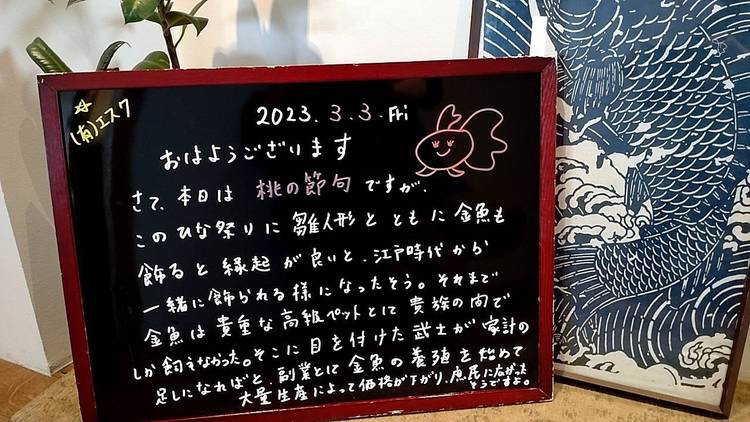 (有)エスク
2023.3.3.Fri
おはようございます
さて、本日は 桃の節句 ですが、
このひな祭りに 雛人形と ともに 金魚も
飾ると 縁起が良いと、江戸時代から
一緒に飾られる様になったそう。それまで
金魚は貴重な高級ペットとして 貴族の間で
しか飼えなかった。そこに目を付けた武士が 家計の
足しになればと、副業として 金魚の養殖を始めて
大量生産によって価格が下がり、庶民に広がった
そうですよ。